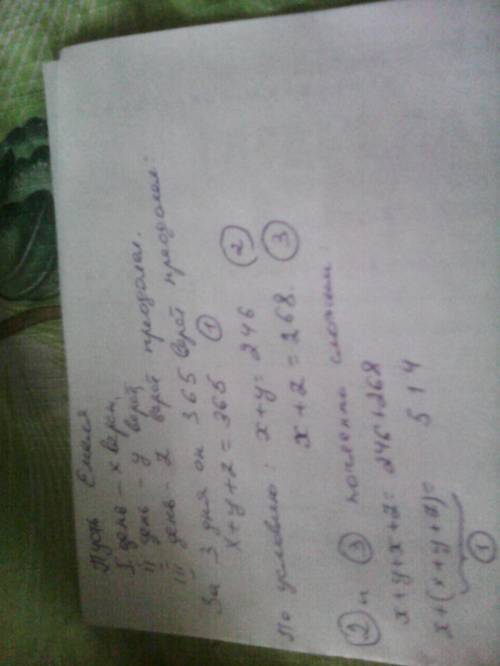 Пусть Емеля
I день - x верст,
II день - y верст
III день - z верст преодолел.
За 3 дня он 365 верст преодолел:
x+y+z=365 ①
По условию: x+y=246 ②
x+z=268. ③
② и ③ почленно сложим:
x+y+x+z=246+268
x+(x+y+z)= 514
①